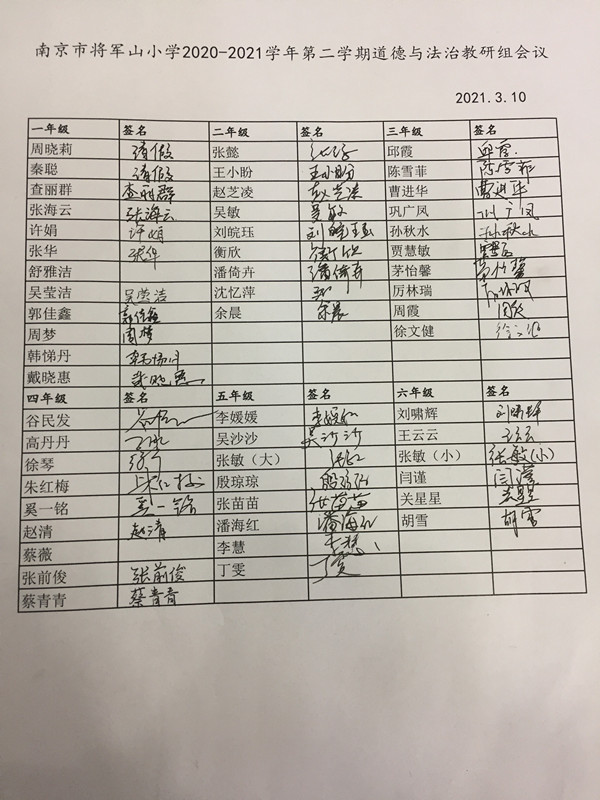 南京市将军山小学2020-2021学年第二学期道德与法治教研组会议
2021.3.10
一年级 签名 二年级 签名 三年级 签名
周晓莉 请假 张懿 邱霞
秦聪 请假 王小盼 王小盼 陈雪菲 陈雪菲
查丽群 查丽群 赵芝凌 赵芝凌 曹进华 曹进华
张海云 张海云 吴敏 吴敏 巩广凤
许娟 许娟 刘皖珏 刘皖珏 孙秋水 孙秋水
张华 张华 衡欣 贾慧敏
舒雅洁 潘倚卉 潘倚卉 茅怡馨 茅怡馨
吴莹洁 吴莹洁 沈忆萍 厉林瑞
郭佳鑫 郭佳鑫 余晨 余晨 周霞
周梦 周梦 徐文健
韩悌丹
戴晓惠 戴晓惠
四年级 签名 五年级 签名 六年级 签名
谷民发 李媛媛 李媛媛 刘啸辉
高丹丹 吴沙沙 吴沙沙 王云云 王云云
徐琴 张敏（大） 张敏（小） 张敏(小)
朱红梅 朱红梅 殷琼琼 闫谨 闫谨
奚一铭 张苗苗 张苗苗 关星星
赵清 赵清 潘海红 潘海红 胡雪 胡雪
蔡薇 李慧 李慧
张前俊 张前俊 丁雯 丁雯
蔡青青 蔡青青